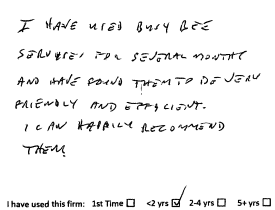 I HAVE USED BUSY BEE
SERVICES FOR SEVERAL MONTHS
AND HAVE FOUND THEM TO BE VERY
FRIENDLY AND EFFICIENT.
I CAN HAPPILY RECOMMEND
THEM.
I have used this firm: 1st Time ☐ <2 yrs ☑ 2-4 yrs ☐ 5+ yrs ☐